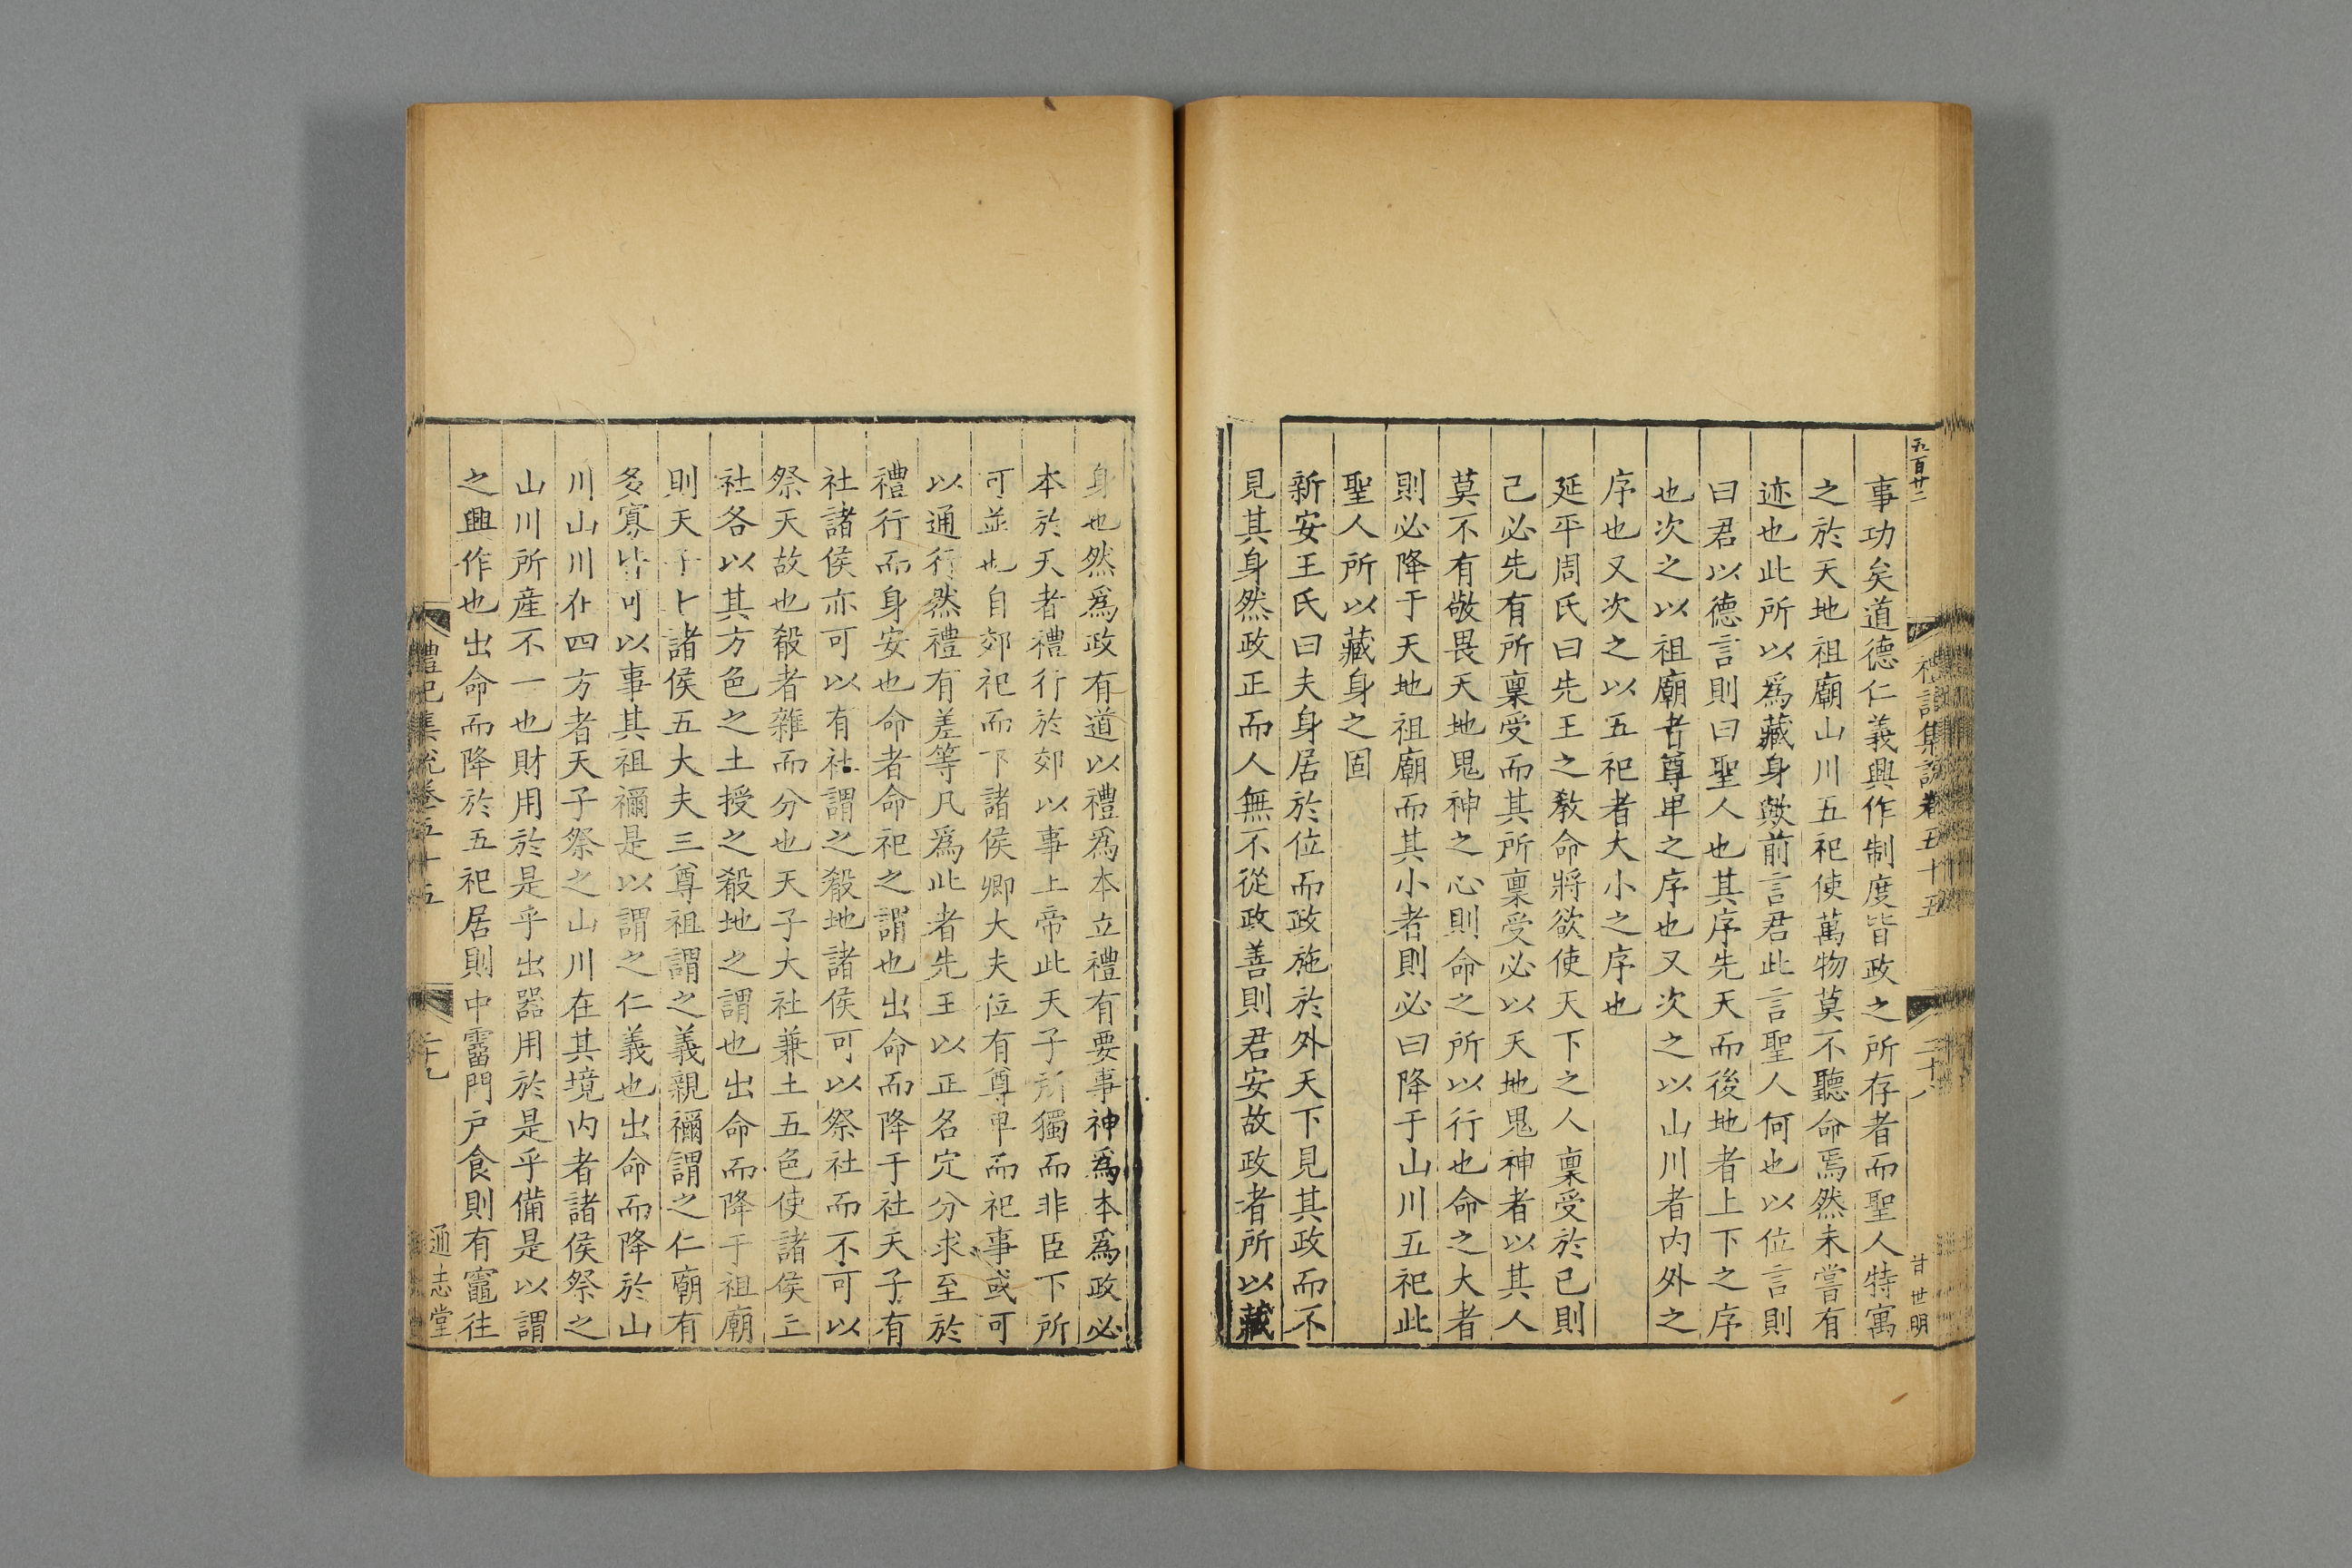 五百廿二
禮記集說卷五十五
二十八
甘世明
事功矣道德仁義興作制度皆政之所存者而聖人特寓
之於天地祖廟山川五祀使萬物莫不聽命焉然未嘗有
迹也此所以爲藏身歟前言君此言聖人何也以位言則
曰君以德言則曰聖人也其序先天而後地者上下之序
也次之以祖廟者尊卑之序也又次之以山川者內外之
序也又次之以五祀者大小之序也
延平周氏曰先王之敎命將欲使天下之人稟受於已則
己必先有所稟受而其所稟受必以天地鬼神者以其人
莫不有敬畏天地鬼神之心則命之所以行也命之大者
則必降于天地祖廟而其小者則必曰降于山川五祀此
聖人所以藏身之固
新安王氏曰夫身居於位而政施於外天下見其政而不
見其身然政正而人無不從政善則君安故政者所以藏
身也然爲政有道以禮爲本立禮有要事神爲本爲政必
本於天者禮行於郊以事上帝此天子所獨而非臣下所
可並也自郊祀而下諸侯卿大夫位有尊卑而祀事或可
以通行然禮有差等凡爲此者先王以正名定分求至於
禮行而身安也命者命祀之謂也出命而降于社天子有
社諸侯亦可以有社謂之殽地諸侯可以祭社而不可以
祭天故也殽者雜而分也天子大社兼土五色使諸侯立
社各以其方色之土授之殽地之謂也出命而降于祖廟
則天子七諸侯五大夫三尊祖謂之義親禰謂之仁廟有
多寡皆可以事其祖禰是以謂之仁義也出命而降於山
川山川在四方者天子祭之山川在其境內者諸侯祭之
山川所產不一也財用於是乎出器用於是乎備是以謂
之興作也出命而降於五祀居則中霤門戶食則有竈往
禮記集說卷五十五
二十九
通志堂